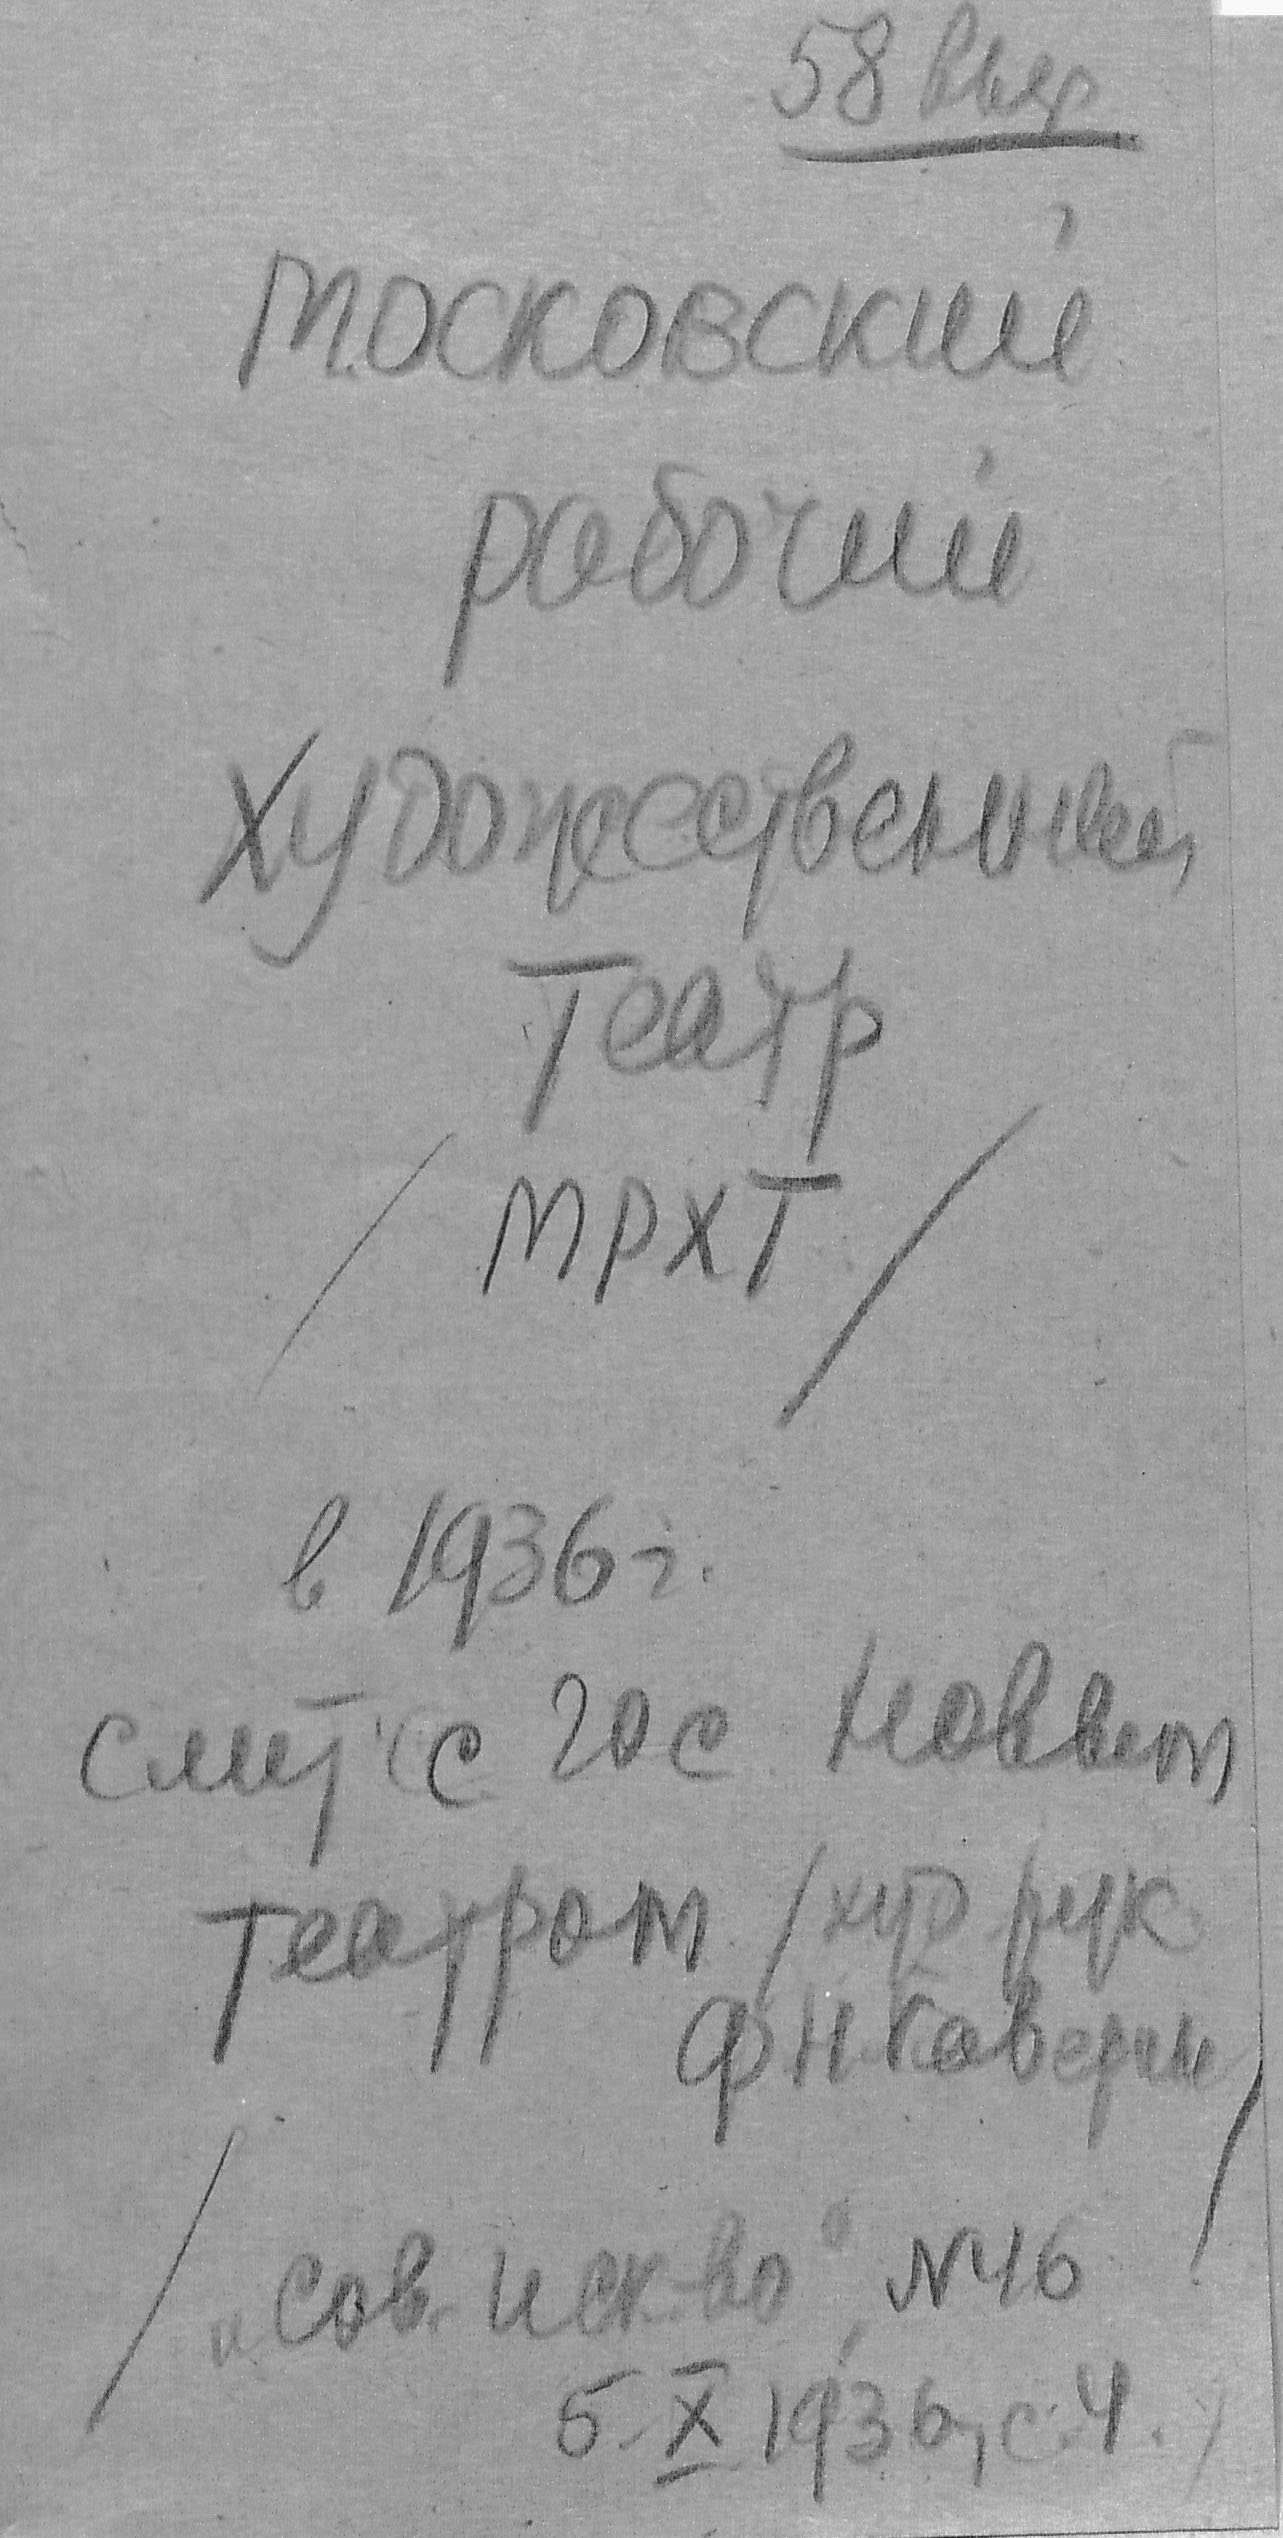 58
Московский
рабочий
художественный
театр
/ МРХТ /
в 1936 г.
слит с Гос. Новым
театром /худ рук
Ф Н Каверин/
/ "Сов. иск-во", № 46
5.X 1936, с. 4. /